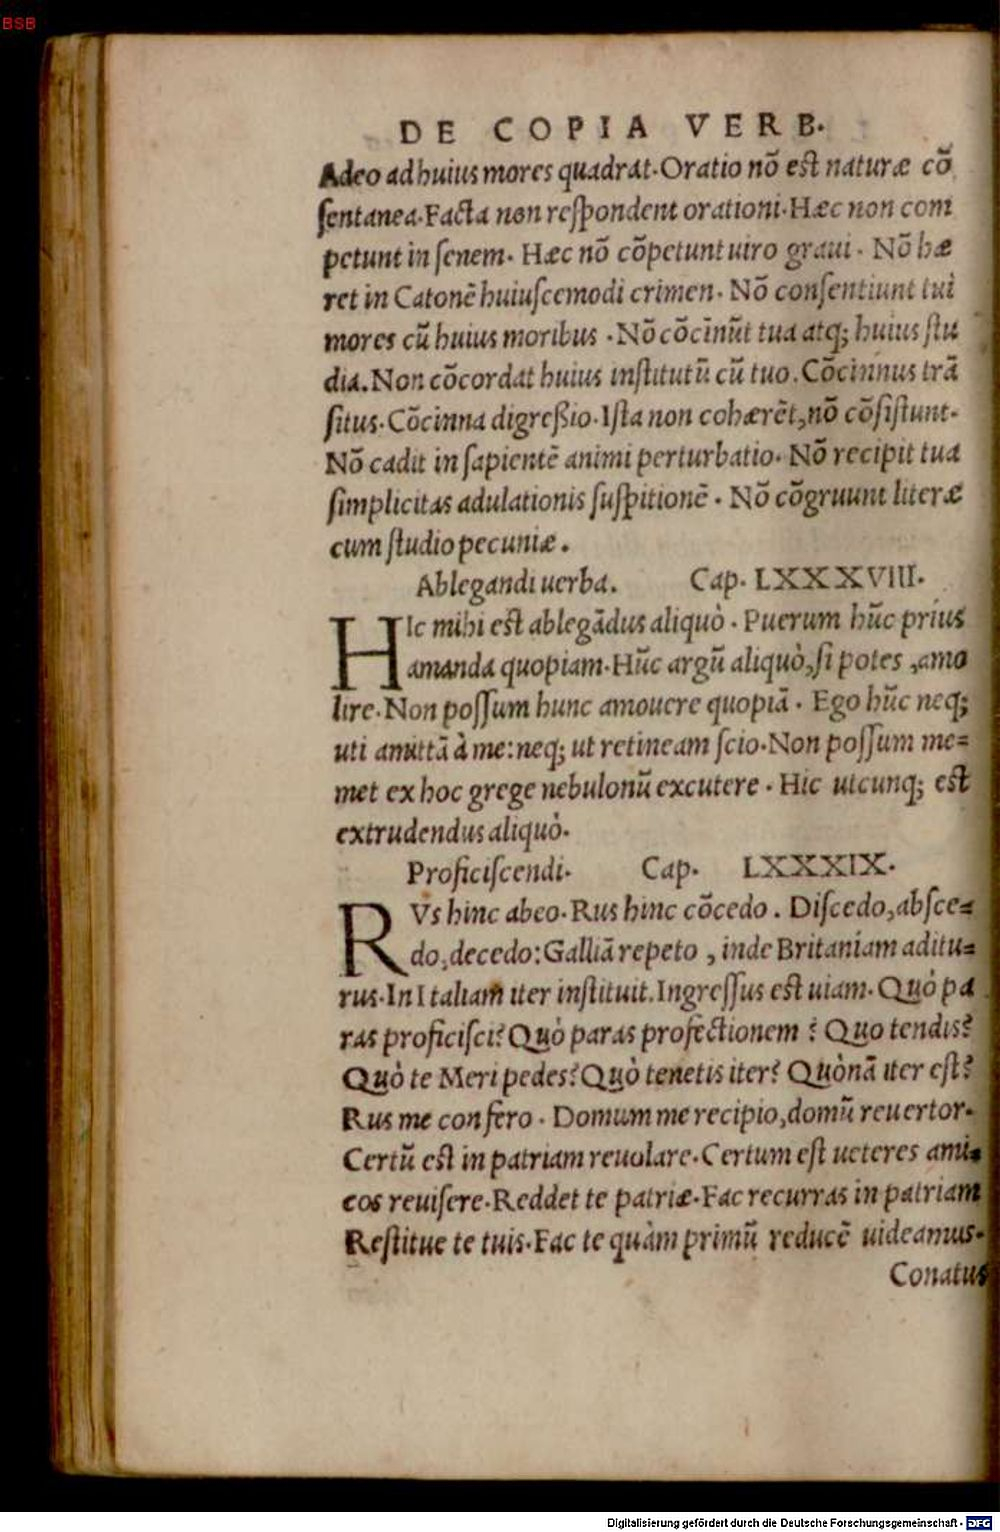 BSB
DE COPIA VERB.
Adeo ad huius mores quadrat. Oratio nõ est naturæ cõ
sentanea. Facta non respondent orationi. Hæc non com
petunt in senem. Hæc nõ cõpetunt uiro graui. Nõ hæ
ret in Catonẽ huiuscemodi crimen. Nõ consentiunt tui
mores cũ huius moribus. Nõ cõcinũt tua atq; huius stu
dia. Non cõcordat huius institutũ cũ tuo. Cõcinnus trã
situs. Cõcinna digreßio. Ista non cohærẽt, nõ cõsistunt.
Nõ cadit in sapientẽ animi perturbatio. Nõ recipit tua
simplicitas adulationis suspitionẽ. Nõ cõgruunt literæ
cum studio pecuniæ.
Ablegandi uerba. Cap. LXXXVIII.
HIc mihi est ablegãdus aliquò. Puerum hũc prius
amanda quopiam. Hũc argũ aliquò, si potes, amo
lire. Non possum hunc amouere quopiã. Ego hũc neq;
uti amittã à me: neq; ut retineam scio. Non possum me=
met ex hoc grege nebulonũ excutere. Hic utcunq; est
extrudendus aliquò.
Proficiscendi. Cap. LXXXIX.
RVs hinc abeo. Rus hinc cõcedo. Discedo, absce=
do, decedo: Galliã repeto, inde Britaniam aditu=
rus. In Italiam iter instituit. Ingressus est uiam. Quò pa
ras proficisci? Quò paras profectionem? Quo tendis?
Quò te Meri pedes? Quò tenetis iter? Quònã iter est?
Rus me confero. Domum me recipio, domũ reuertor.
Certũ est in patriam reuolare. Certum est ueteres ami=
cos reuisere. Reddet te patriæ. Fac recurras in patriam
Restitue te tuis. Fac te quàm primũ reducẽ uideamus.
Conatus
Digitalisierung gefördert durch die Deutsche Forschungsgemeinschaft - DFG